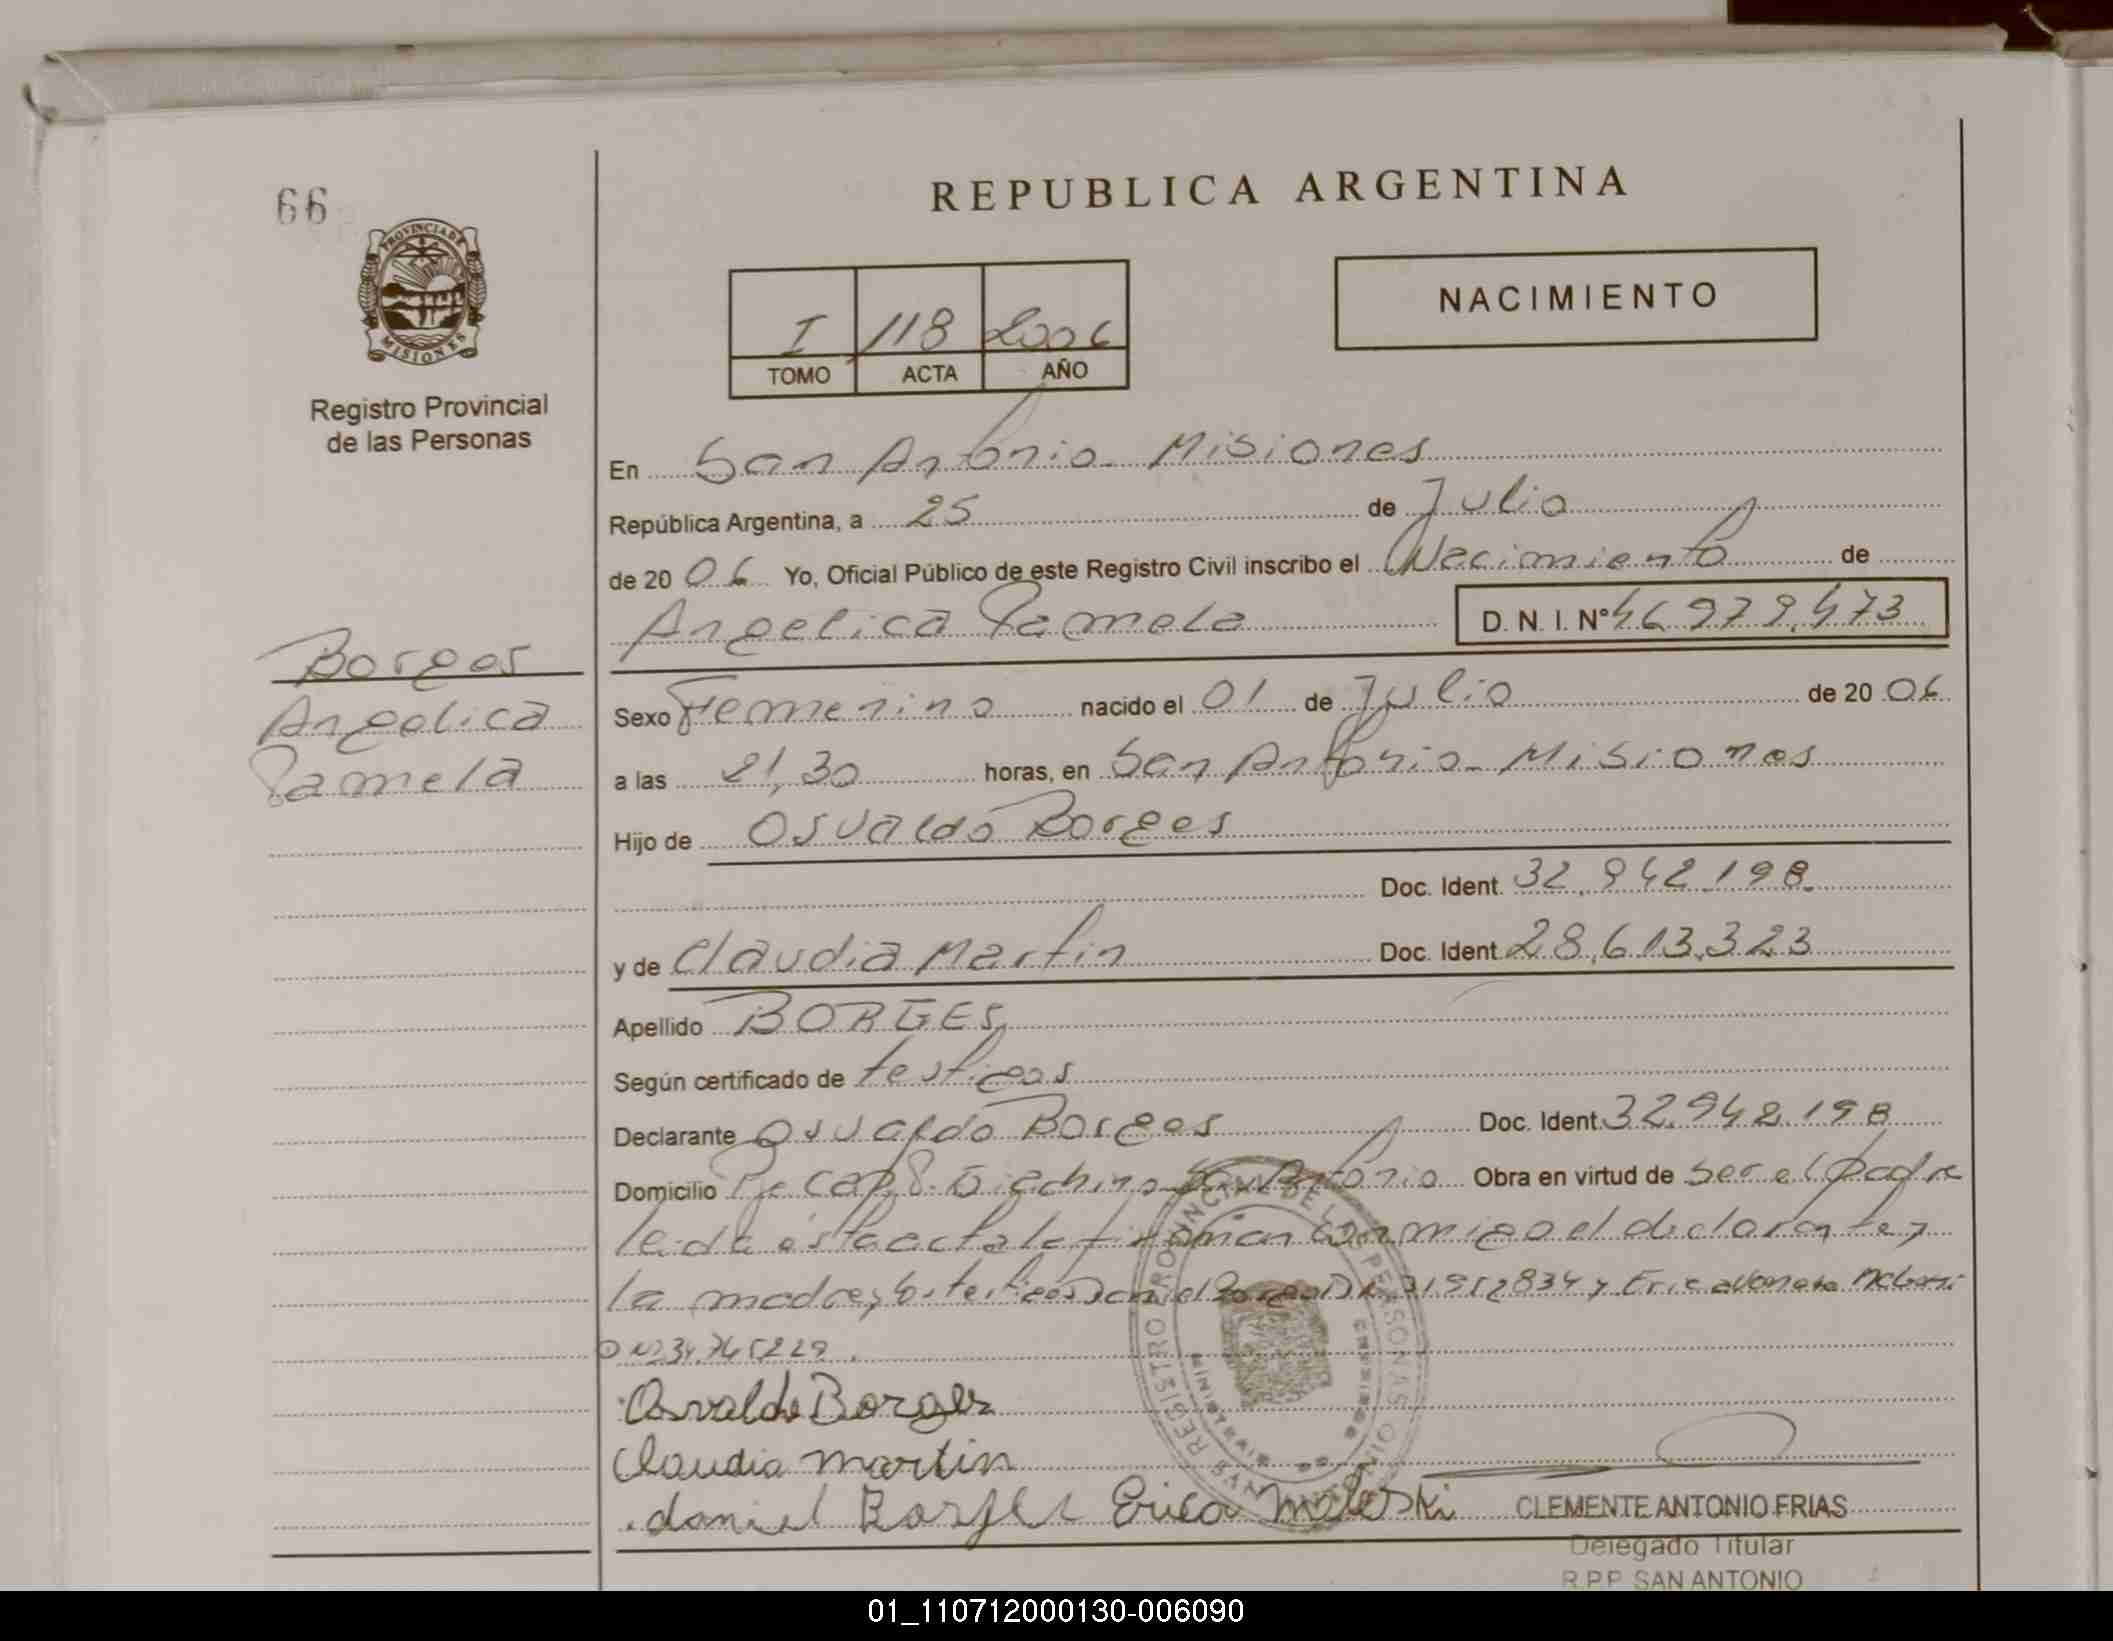 66
PROVINCIA DE MISIONES
Registro Provincial
de las Personas
REPUBLICA ARGENTINA
NACIMIENTO
I 118 2006
TOMO ACTA AÑO
En San Antonio - Misiones
República Argentina, a 25 de Julio
de 2006 Yo, Oficial Público de este Registro Civil inscribo el Nacimiento de
Angelica Pamela D. N. I. Nº 46.979.473
Borges
Angelica
Pamela
Sexo Femenino nacido el 01 de Julio de 2006
a las 21,30 horas, en San Antonio - Misiones
Hijo de Osvaldo Borges
Doc. Ident. 32.942.198
y de Claudia Martin Doc. Ident 28.613.323
Apellido BORGES
Según certificado de testigos
Declarante Osvaldo Borges Doc. Ident. 32.942.198
Domicilio San Antonio Obra en virtud de ser el padre
leida esta acta la firman conmigo el declarante,
la madre y los testigos Daniel Borges 31952834 y Erica
Osvaldo Borges
Claudia martin
daniel Borges Erica CLEMENTE ANTONIO FRIAS
Delegado Titular
R.P.P. SAN ANTONIO
REGISTRO PROVINCIAL DE LAS PERSONAS
01_110712000130-006090